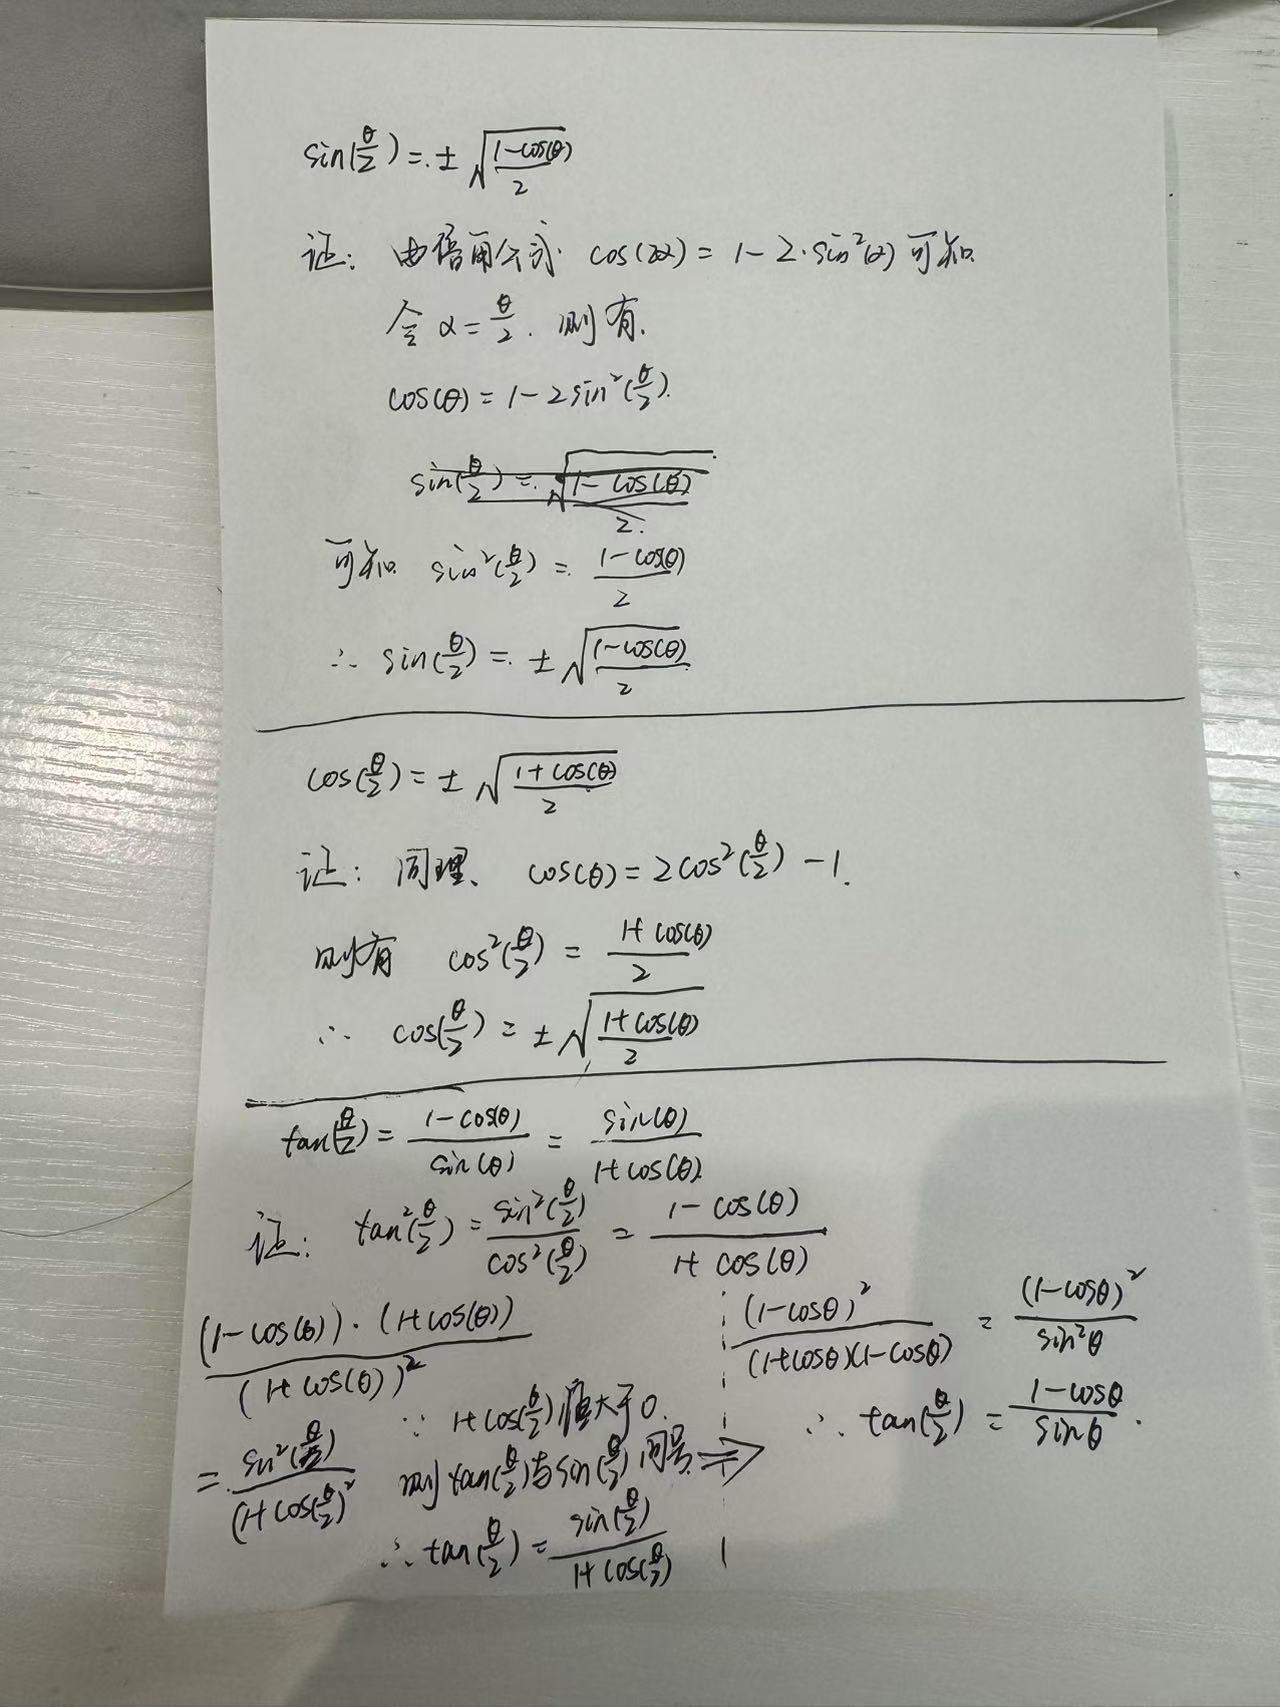 sin(θ/2) = ± √((1-cos(θ))/2)
证: 由倍角公式 cos(2α) = 1 - 2·sin²(α) 可知
令 α = θ/2. 则有.
cos(θ) = 1 - 2sin²(θ/2).
sin(θ/2) = √((1-cos(θ))/2).
可知 sin²(θ/2) = (1-cos(θ))/2
∴ sin(θ/2) = ± √((1-cos(θ))/2)
cos(θ/2) = ± √((1+cos(θ))/2)
证: 同理、 cos(θ) = 2cos²(θ/2) - 1.
则有 cos²(θ/2) = (1+cos(θ))/2
∴ cos(θ/2) = ± √((1+cos(θ))/2)
tan(θ/2) = (1-cos(θ))/sin(θ) = sin(θ)/(1+cos(θ))
证: tan²(θ/2) = sin²(θ/2)/cos²(θ/2) = (1-cos(θ))/(1+cos(θ))
(1-cos(θ))·(1+cos(θ))/(1+cos(θ))²
= sin²(θ/2)/(1+cos(θ/2))²
∵ 1+cos(θ/2) 恒大于0.
则 tan(θ/2) 与 sin(θ/2) 同号 ⇒
∴ tan(θ/2) = sin(θ/2)/(1+cos(θ/2))
(1-cosθ)²/((1+cosθ)(1-cosθ)) = (1-cosθ)²/sin²θ
∴ tan(θ/2) = (1-cosθ)/sinθ.